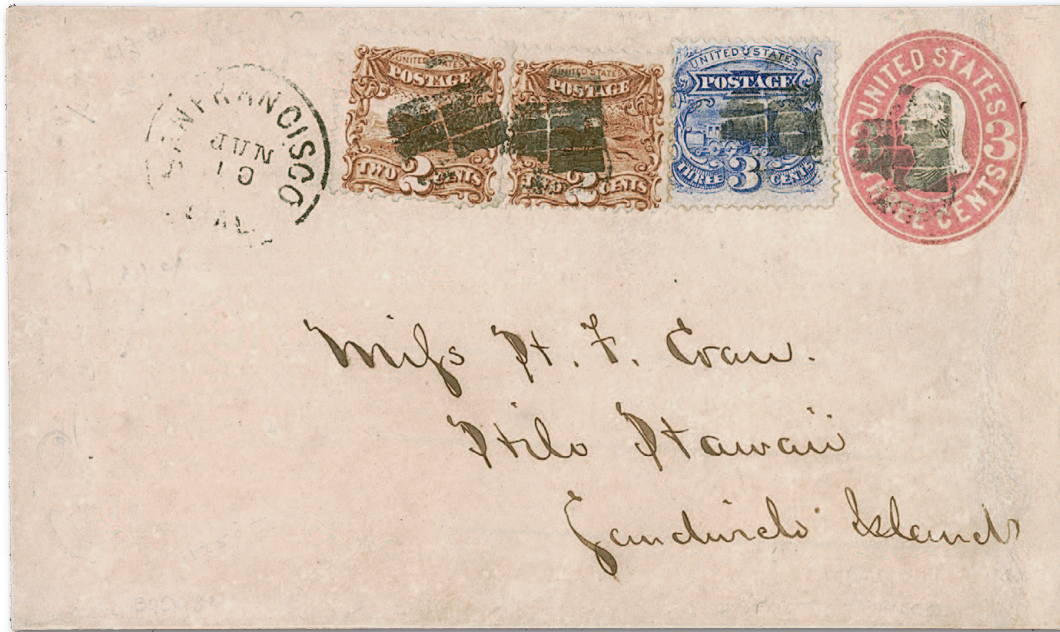 SAN FRANCISCO
JUN
10
UNITED STATES
POSTAGE
TWO 2 CENTS
UNITED STATES
POSTAGE
TWO 2 CENTS
UNITED STATES
POSTAGE
THREE 3 CENTS
UNITED STATES
3
THREE CENTS
Miſs H. F. Coan.
Hilo Hawaii
Sandwich Islands